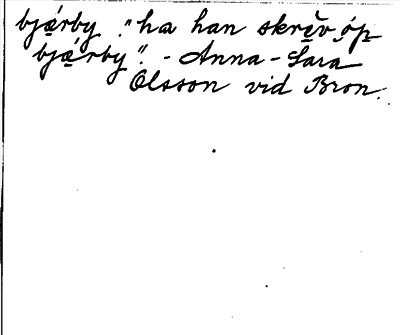 bją́rby. "ha han skrę̆v óp
bją́rby". - Anna-Sara
Olsson vid Bron.